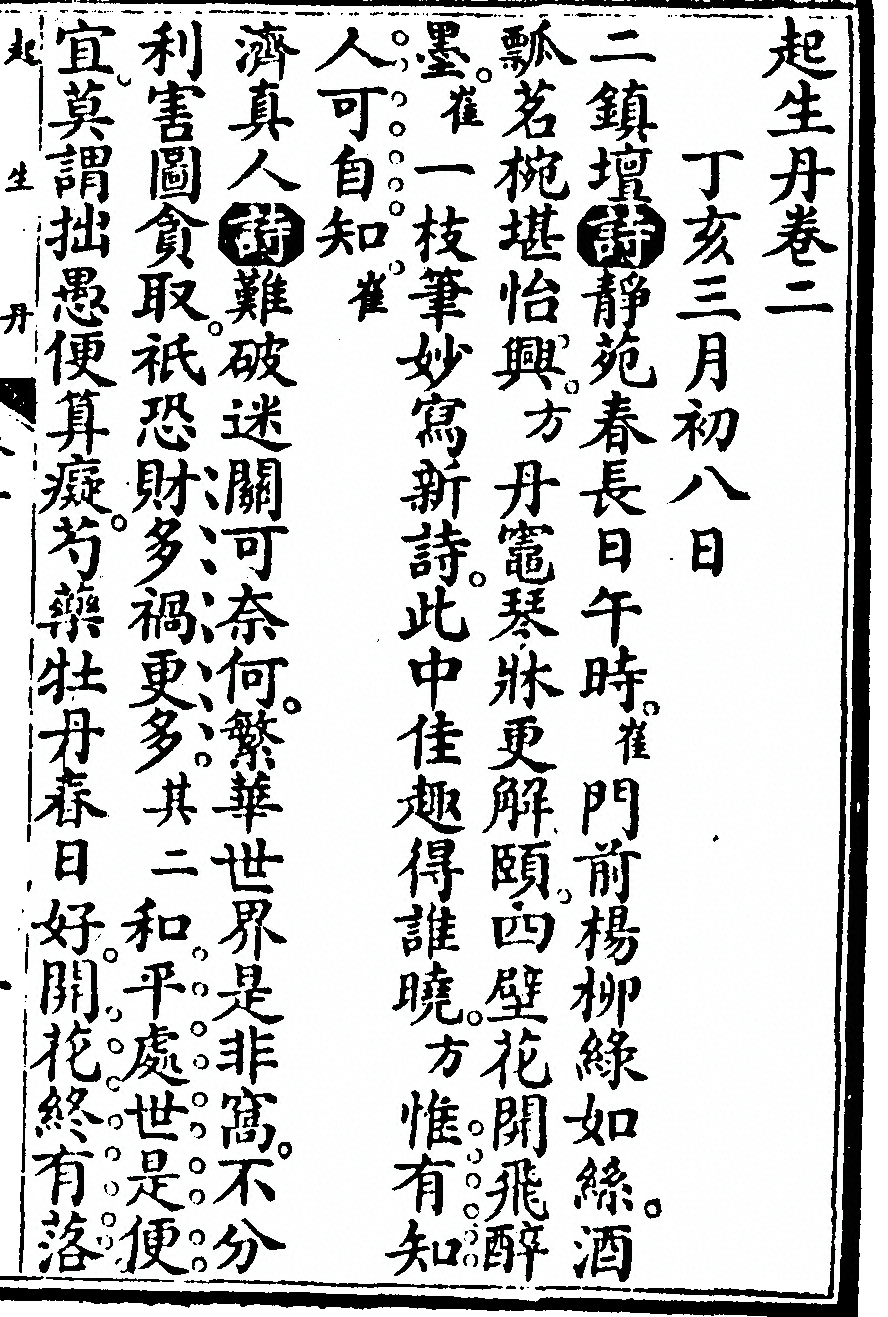 起生丹卷二
丁亥三月初八日
二鎮壇詩靜苑春長日午時。崔門前楊柳綠如絲。酒
瓢茗椀堪怡興。方丹竈琴牀更解頤。四壁花開飛醉
墨。崔一枝筆妙寫新詩。此中佳趣得誰曉。方惟有知
人可自知崔
濟真人詩難破迷關可奈何。繁華世界是非窩。不分
利害圖貪取。祇恐財多禍更多。其二和平處世是便
宜。莫謂拙愚便算癡。芍藥牡丹春日好。開花終有落
起生丹